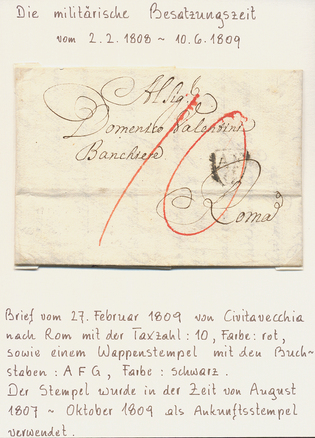 Die militärische Besatzungszeit
vom 2.2.1808 ~ 10.6.1809
Al Sigr
Domenico Valentini
Banchiere
Roma
10
Brief vom 27. Februar 1809 von Civitavecchia
nach Rom mit der Taxzahl: 10, Farbe: rot,
sowie einem Wappenstempel mit den Buch-
staben: A F G, Farbe: schwarz.
Der Stempel wurde in der Zeit von August
1807 ~ Oktober 1809 als Ankunftsstempel
verwendet.